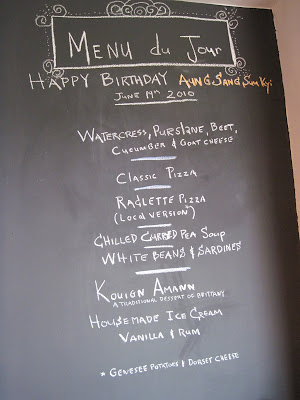 MENU du Jour
HAPPY BIRTHDAY AUNG SANG SUU Kyi
JUNE 19th 2010
WATERCRESS, PURSLANE, BEET,
CUCUMBER & GOAT CHEESE
CLASSIC PIZZA
RACLETTE PIZZA
(LOCAL VERSION*)
CHILLED CURRIED PEA SOUP
WHITE BEANS & SARDINES
KOUIGN AMANN
A TRADITIONAL DESSERT OF BRITTANY
HOUSEMADE ICE CREAM
VANILLA & RUM
* GENESEE POTATOES & DORSET CHEESE